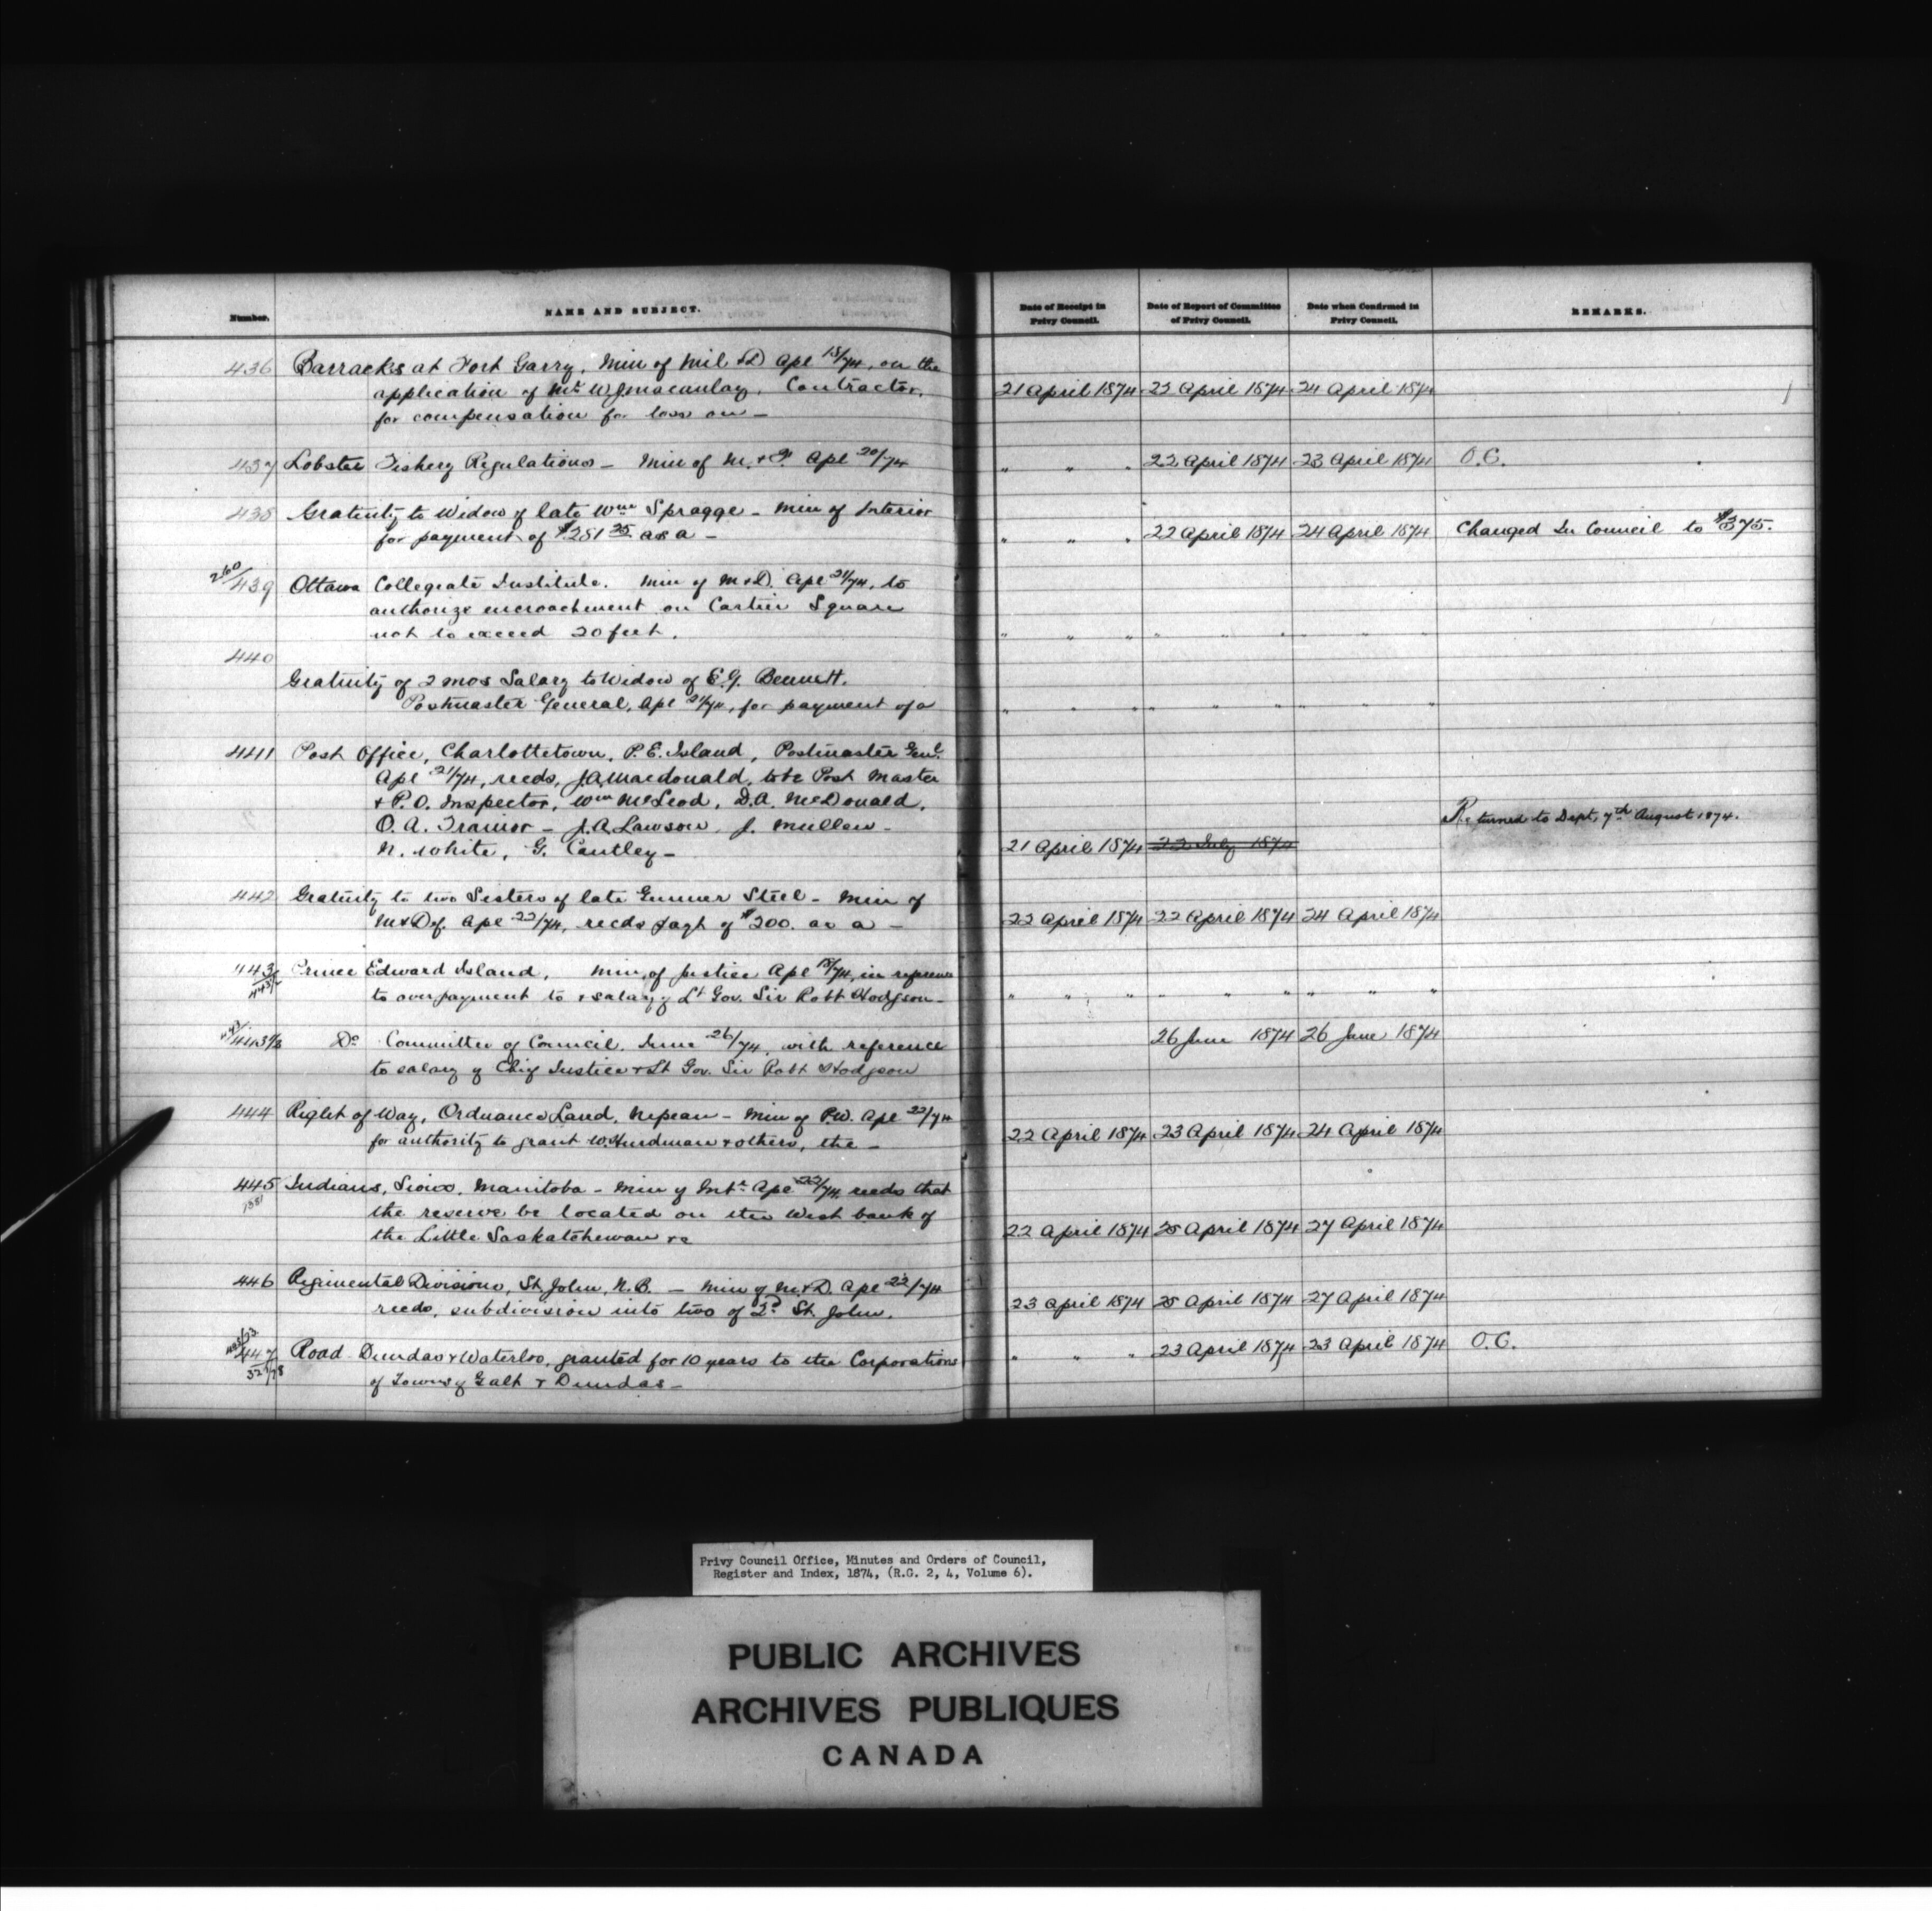 Number.
NAME AND SUBJECT.
Date of Receipt in Privy Council.
Date of Report of Committee of Privy Council.
Date when Confirmed in Privy Council.
REMARKS.
436 Barracks at Fort Garry, Min of Mil & D Apl 18/74, on the
application of Mr. W. J. Macaulay, Contractor,
for compensation for loss on —
21 April 1874 22 April 1874 24 April 1874
437 Lobster Fishery Regulations — Min of M. & F. Apl 20/74
" " " 22 April 1874 23 April 1874 O.C.
438 Gratuity to Widow of late Wm Spragge — Min of Interior
for payment of $281 25 as a —
" " " 22 April 1874 24 April 1874 Changed in Council to $375.
260/439 Ottawa Collegiate Institute. Min of M & D. Apl 21/74, to
authorize encroachment on Cartier Square
not to exceed 20 feet.
" " " " " " " " "
440
Gratuity of 2 mos Salary to Widow of E. G. Bennett.
Postmaster General, Apl 21/74, for payment of a
" " " " " " " " "
441 Post Office, Charlottetown, P. E. Island, Postmaster Genl.
Apl 21/74, recds, J. A. Macdonald, to be Post Master
& P. O. Inspector, Wm McLeod, D. A. McDonald,
O. A. Trainor — J. A. Lawson, J. Mullen —
N. White, G. Cautley —
21 April 1874 22 July 1874
Returned to Dept, 7th August 1874.
442 Gratuity to two Sisters of late Gunner Steel — Min of
M & Def. Apl 22/74, recds paymt of $200. as a —
22 April 1874 22 April 1874 24 April 1874
443 Prince Edward Island, Min, of Justice Apl 18/74, in reference
to overpayment to & salary of Lt Gov. Sir Robt Hodgson —
" " " " " " " " "
Do Committee of Council, June 26/74, with reference
to salary of Chief Justice & Lt Gov. Sir Robt Hodgson
26 June 1874 26 June 1874
444 Right of Way, Ordnance Land, Nepean — Min of P.W. Apl 22/74
for authority to grant W. Hurdman & others, the —
22 April 1874 23 April 1874 24 April 1874
445 Indians, Sioux, Manitoba — Min of Intr Apl 22/74, recds that
the reserve be located on the West bank of
the Little Saskatchewan &c
22 April 1874 25 April 1874 27 April 1874
446 Regimental Divisions, St. John, N. B. — Min of M & D. Apl 22/74
recds, subdivision into two of 2d St. John.
23 April 1874 25 April 1874 27 April 1874
447 Road Dundas & Waterloo, granted for 10 years to the Corporations
of Towns of Galt & Dundas —
" " " 23 April 1874 23 April 1874 O.C.
Privy Council Office, Minutes and Orders of Council,
Register and Index, 1874, (R.G. 2, 4, Volume 6).
PUBLIC ARCHIVES
ARCHIVES PUBLIQUES
CANADA